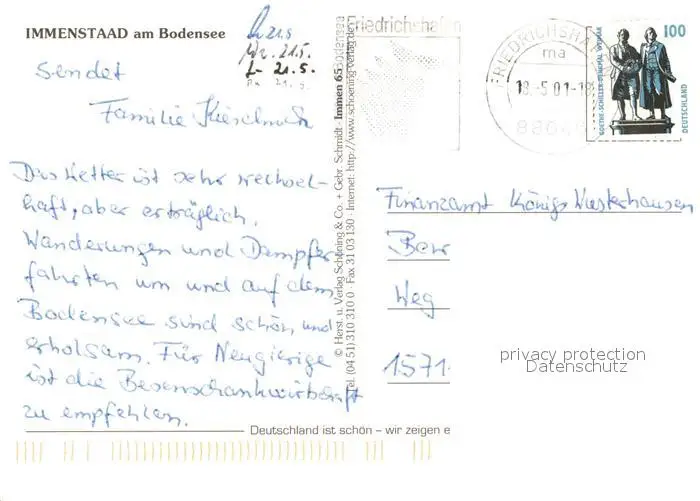 IMMENSTAAD am Bodensee
21.5.
21.5.
21.5.
sendet
Familie
Das Wetter ist sehr wechsel-
haft, aber erträglich.
Wanderungen und Dampfer-
fahrten um und auf dem
Bodensee sind schön und
erholsam. Für Neugierige
ist die Besenschankwirtschaft
zu empfehlen.
Deutschland ist schön – wir zeigen e
© Herst. u. Verlag Schöning & Co. + Gebr. Schmidt · Immen 65
Tel. (04 51) 310 310 0 · Fax 31 03 130 · Internet: http://www.schoening-verlag.de
Friedrichshafen
FRIEDRICHSHAFEN
ma
18.-5.01-18
88045
100
GOETHE-SCHILLER-DENKMAL WEIMAR
DEUTSCHLAND
Finanzamt Königs Wusterhausen
Weg
1571
privacy protection
Datenschutz